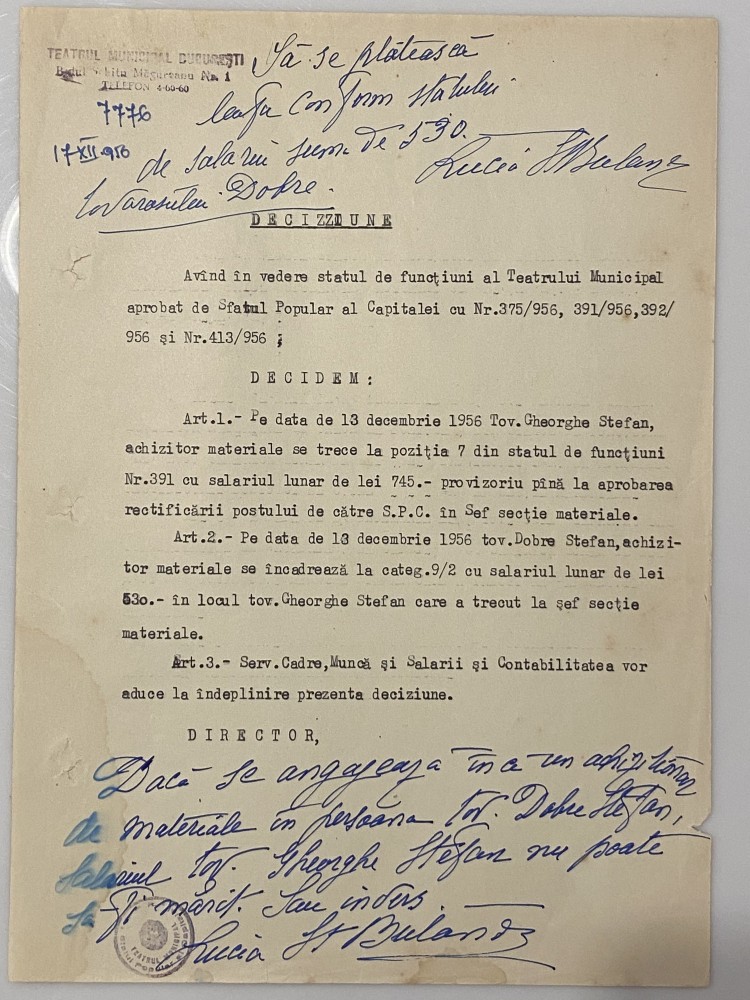 TEATRUL MUNICIPAL BUCUREȘTI
B-dul Schitu Măgureanu Nr. 1
TELEFON 4-60-60
7776
17 XII 956
Să se plătească
leafa conform statului
de salarii suma de 530.
tovarasului Dobre.
Lucia St Bulandra
DECIZZIUNE
Avînd în vedere statul de funcţiuni al Teatrului Municipal
aprobat de Sfatul Popular al Capitalei cu Nr.375/956, 391/956,392/
956 şi Nr.413/956 ;
DECIDEM:
Art.1.- Pe data de 13 decembrie 1956 Tov.Gheorghe Stefan,
achizitor materiale se trece la poziţia 7 din statul de funcţiuni
Nr.391 cu salariul lunar de lei 745.- provizoriu pînă la aprobarea
rectificării postului de către S.P.C. în Sef secţie materiale.
Art.2.- Pe data de 13 decembrie 1956 tov.Dobre Stefan,achizi-
tor materiale se încadrează la categ.9/2 cu salariul lunar de lei
530.- în locul tov.Gheorghe Stefan care a trecut la şef secţie
materiale.
Art.3.- Serv.Cadre,Muncă şi Salarii şi Contabilitatea vor
aduce la îndeplinire prezenta deciziune.
DIRECTOR,
Dacă se angajeaza inca un achizitionar
de materiale in persoana tov. Dobre Stefan,
salariul tov. Gheorghe Stefan nu poate
sa fi mărit. Sau invers.
Lucia St Bulandra